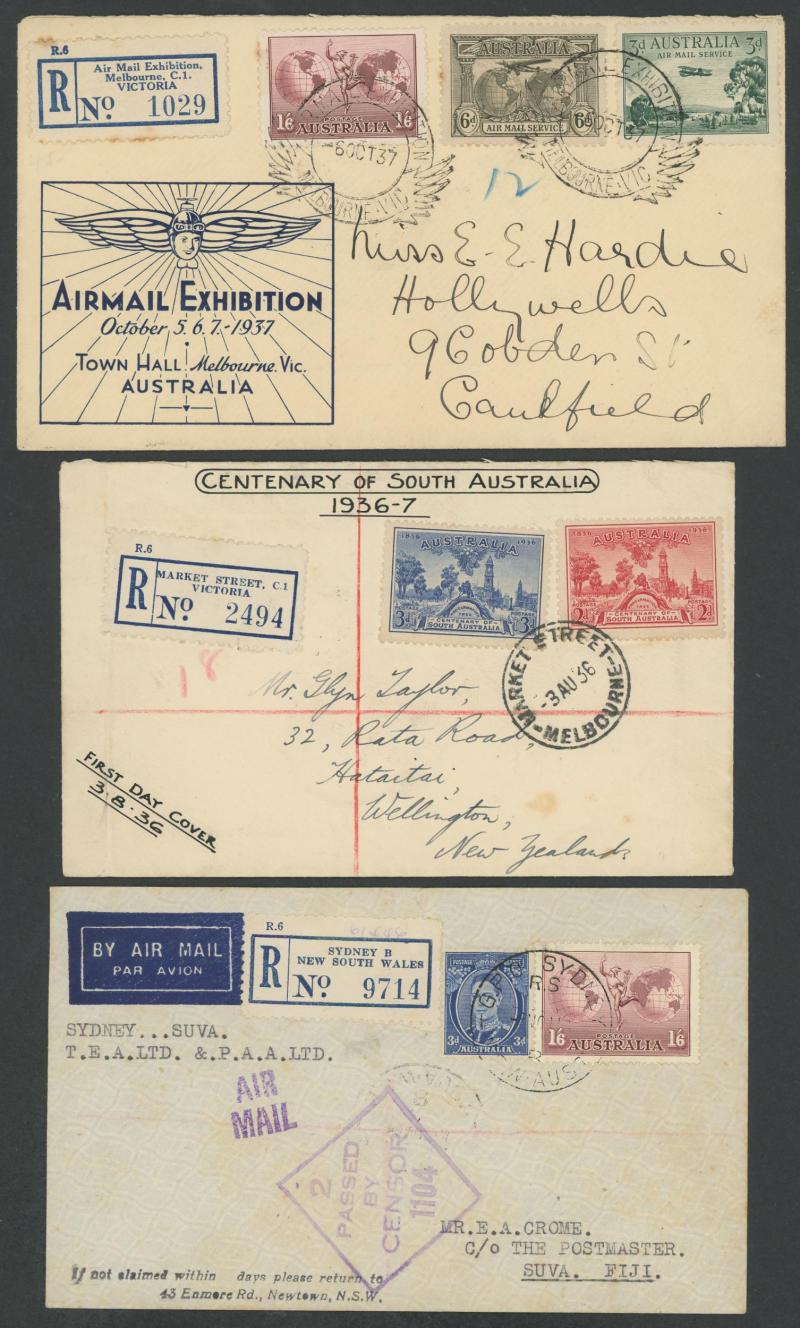 R.6
R
Air Mail Exhibition,
Melbourne, C.1.
VICTORIA
No 1029
1/6 POSTAGE 1/6
AUSTRALIA
AUSTRALIA
6d AIR MAIL SERVICE 6d
3d AUSTRALIA 3d
AIR MAIL SERVICE
6OCT37
MELBOURNE.VIC
EXHIBITION
OCT37
MELBOURNE.VIC
12
AIRMAIL EXHIBITION
October 5.6.7.-1937
TOWN HALL Melbourne. Vic.
AUSTRALIA
Miss E. E. Hardie
Hollywells
9 Cobden St
Caulfield
CENTENARY OF SOUTH AUSTRALIA
1936-7
R.6
R
MARKET STREET, C.1
VICTORIA
No 2494
1836 1936
AUSTRALIA
POSTAGE POSTAGE
3d CENTENARY OF SOUTH AUSTRALIA 3d
1836 1936
AUSTRALIA
POSTAGE POSTAGE
2d CENTENARY OF SOUTH AUSTRALIA 2d
MARKET STREET-NE
-3AU36
-MELBOURNE
18
Mr. Glyn Taylor,
32, Rata Road,
Hataitai,
Wellington,
New Zealand.
FIRST DAY COVER
3.8.36
BY AIR MAIL
PAR AVION
R.6
R
SYDNEY B
NEW SOUTH WALES
No 9714
POSTAGE
3d AUSTRALIA 3d
1/6 POSTAGE 1/6
AUSTRALIA
SYDNEY...SUVA.
T.E.A.LTD. & P.A.A.LTD.
AIR
MAIL
2
PASSED
BY
CENSOR
1104
MR.E.A.CROME.
C/o THE POSTMASTER.
SUVA. FIJI.
If not claimed within days please return to
43 Enmore Rd., Newtown, N.S.W.